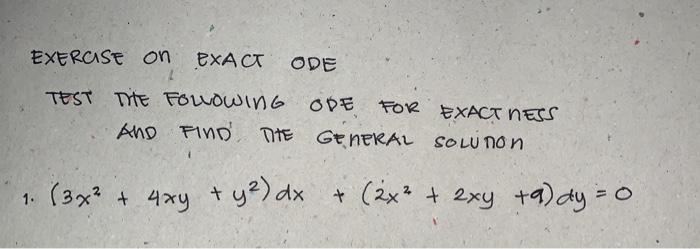 EXERCISE On EXACT ODE
TEST THE FOLLOWING ODE FOR EXACTNESS
AND FIND THE GENERAL SOLUTION
1. (3x² + 4xy + y²) dx + (2x² + 2xy + 9) dy = 0